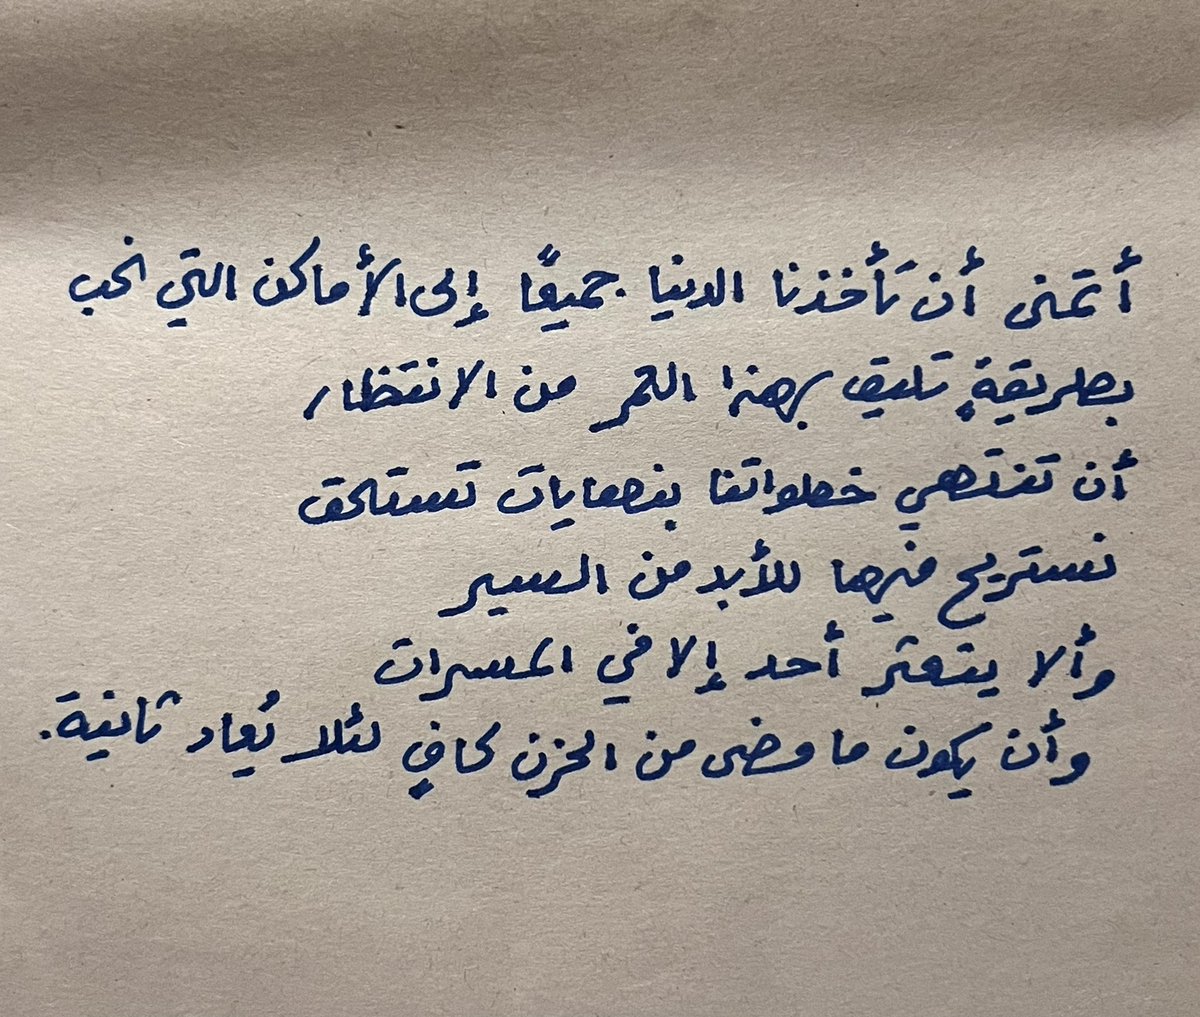 أتمنى أن تأخذنا الدنيا جميعًا إلى الأماكن التي نحب
بطريقةٍ تليق بهذا العمر من الانتظار
أن تنتهي خطواتنا بنهايات تستحق
نستريح فيها للأبد من السير
وألا يتعثر أحد إلا في المسرات
وأن يكون ما مضى من الحزن كافٍ لئلا يُعاد ثانية.